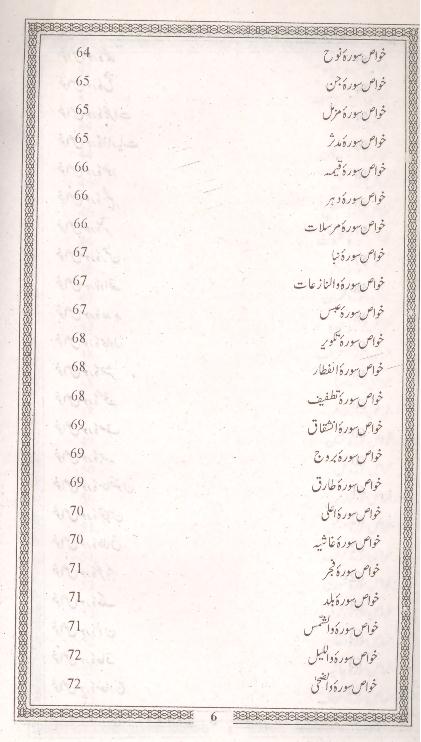 خواص سورۂ نوح 64
خواص سورۂ جن 65
خواص سورۂ مزمل 65
خواص سورۂ مدثر 65
خواص سورۂ قیٰمہ 66
خواص سورۂ دہر 66
خواص سورۂ مرسلات 66
خواص سورۂ نبا 67
خواص سورۂ والنازعات 67
خواص سورۂ عبس 67
خواص سورۂ تکویر 68
خواص سورۂ انفطار 68
خواص سورۂ تطفیف 68
خواص سورۂ انشقاق 69
خواص سورۂ بروج 69
خواص سورۂ طارق 69
خواص سورۂ اعلیٰ 70
خواص سورۂ غاشیہ 70
خواص سورۂ فجر 71
خواص سورۂ بلد 71
خواص سورۂ والشمس 71
خواص سورۂ واللیل 72
خواص سورۂ والضحیٰ 72
6